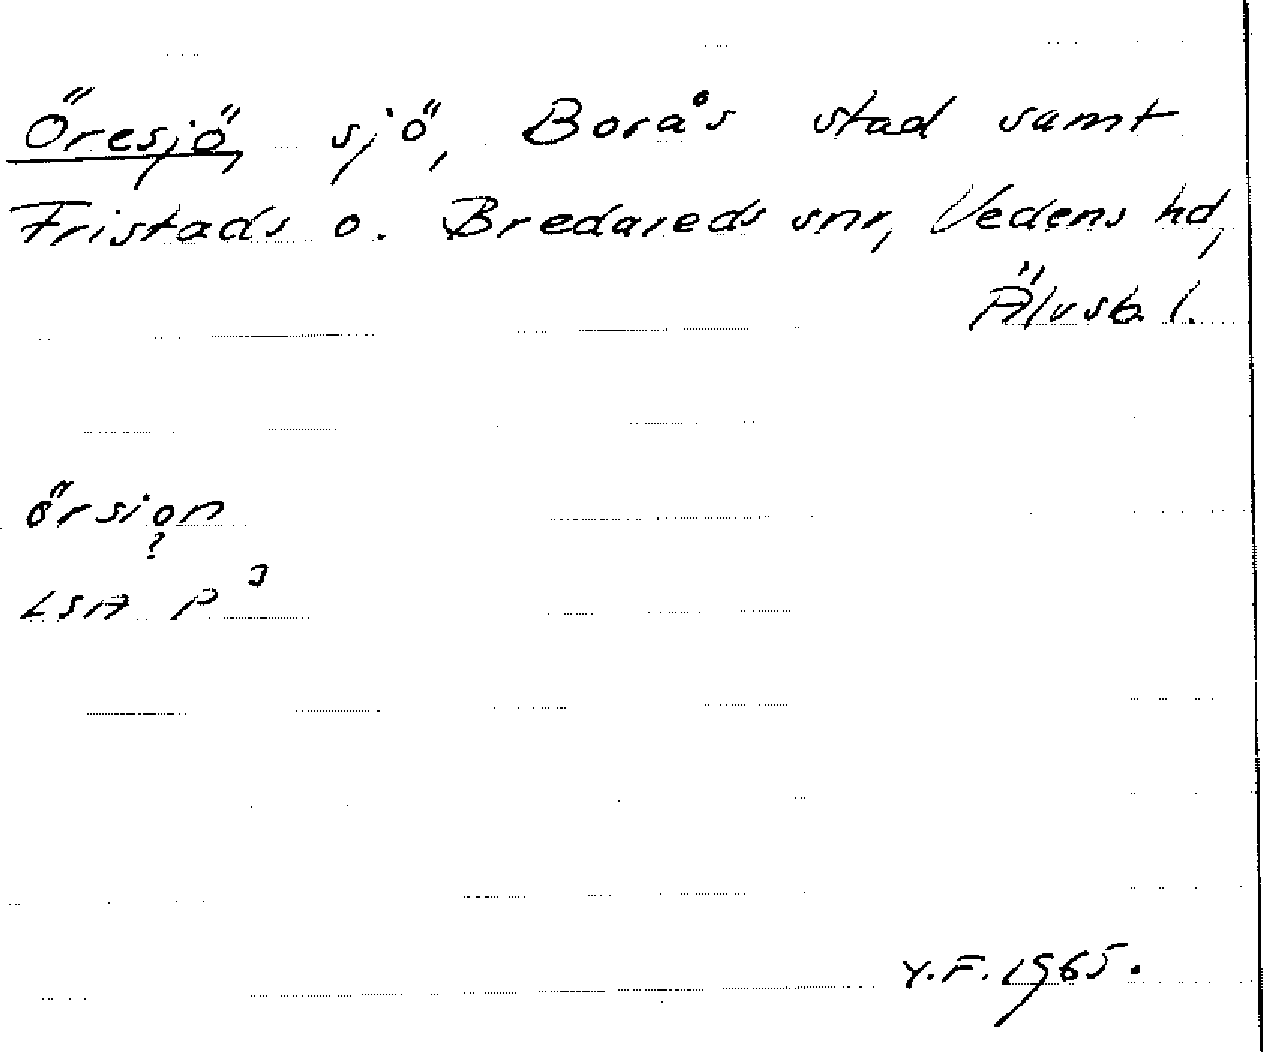 Öresjö, sjö, Borås stad samt
Fristads o. Bredareds snr, Vedens hd,
Älvsb. l.
örsion
?
LSA P
Y.F. 1965.